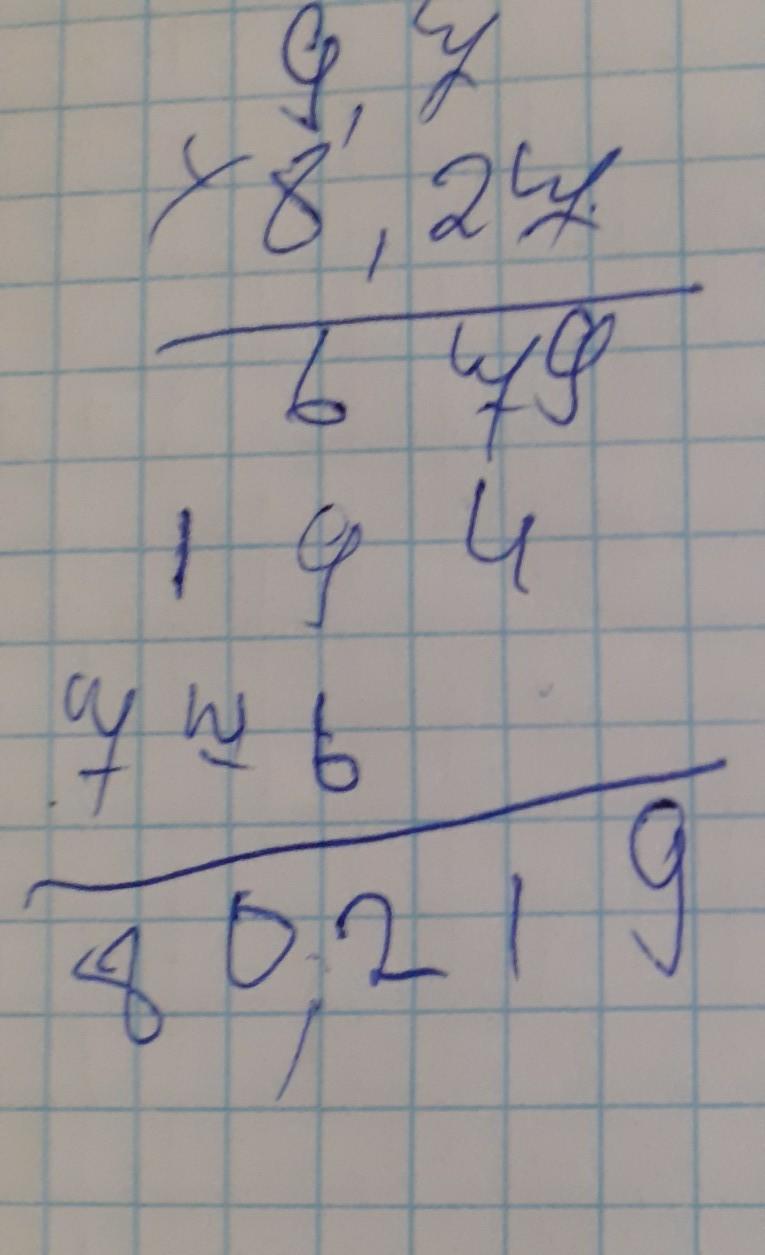 9,7
× 8,27
679
194
776
80,219